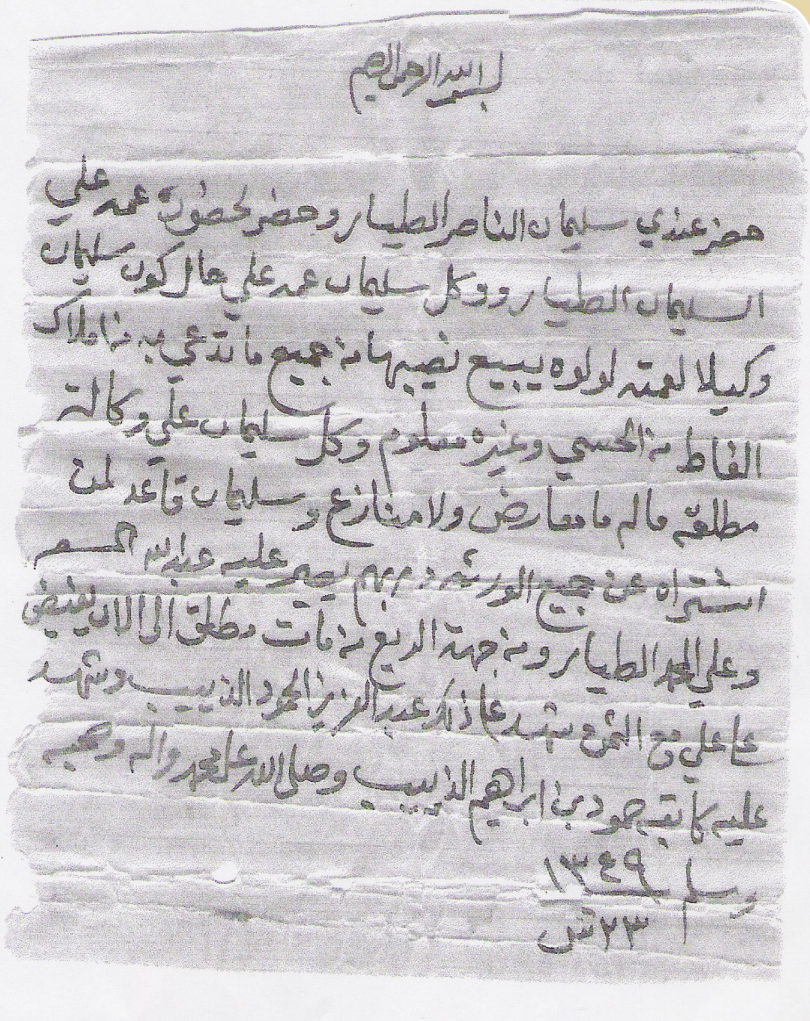 بسم الله الرحمن الرحيم
حضر عندي سليمان الناصر الطيار وحضر لحضوره عمه علي
السليمان الطيار ووكل سليمان عمه علي حال كون سليمان
وكيلا لعمته لولوه يبيع نصيبها من جميع ما تدعي به من املاك
القاط من الحسي وغيره معلوم وكل سليمان علي وكالة
مطلقه ماله ما معارض ولا منازع وسليمان قاعد لمن
اشتراه عن جميع الورثه يصير عليه عبدالله
وعلي المحمد الطيار ومن جهة الريع من مات مطلق الى الان يقيض
عا علي مع الثمن شهد عا ذلك عبد العزيز الحمود الذييب وشهد
عليه كاتبه حمود بن ابراهيم الذييب وصلى الله على محمد واله وصحبه
وسلم ١٣٤٩
٢٣ ش